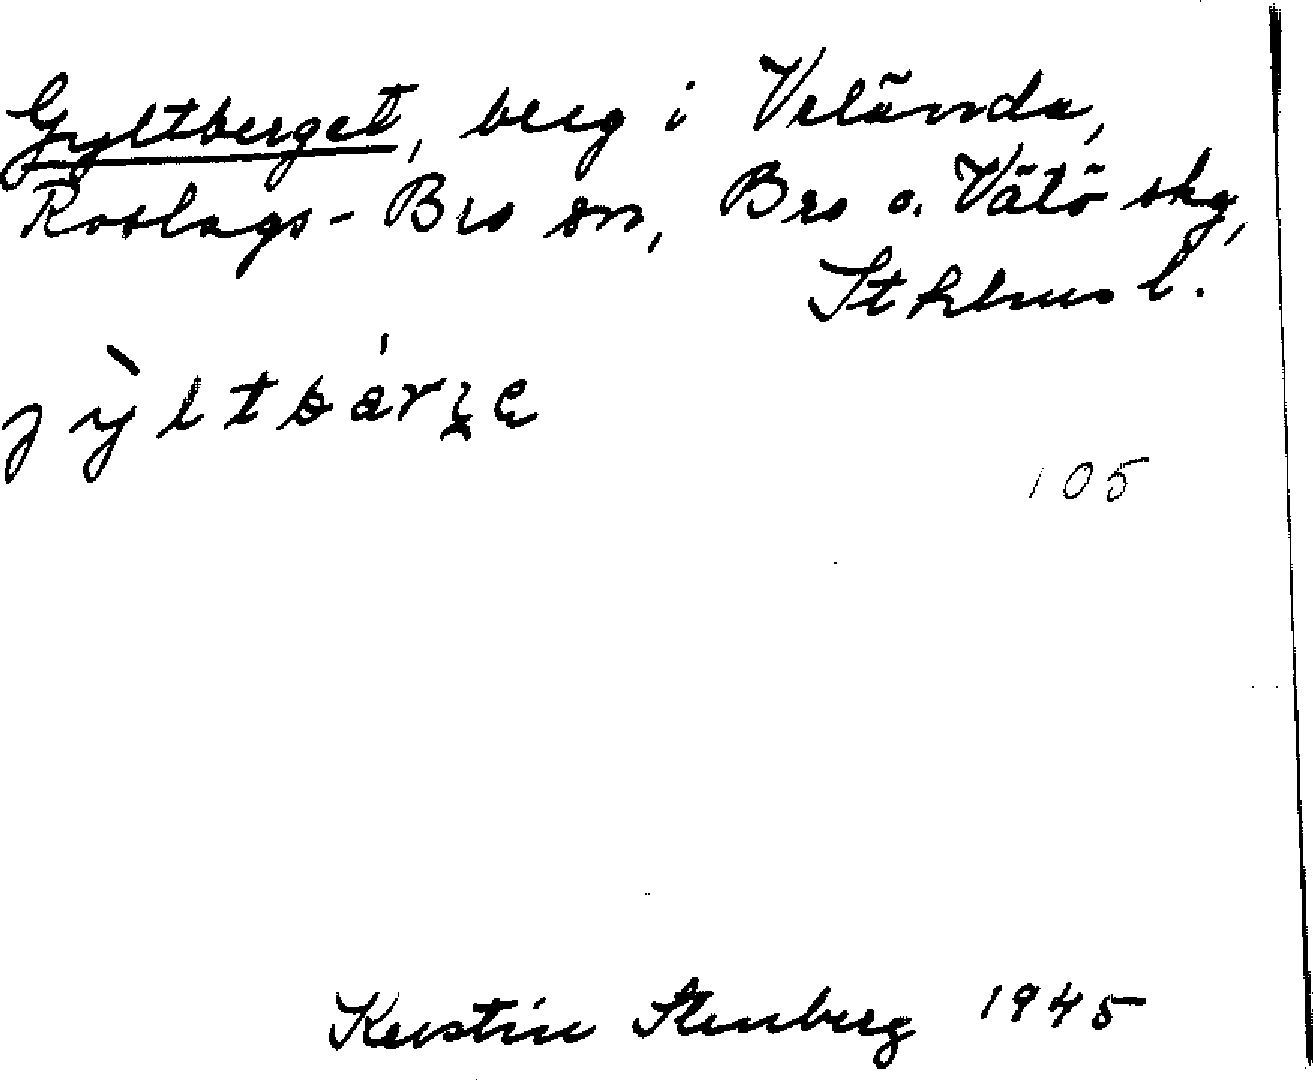 Gyltberget, berg i Velända,
Roslags-Bro sn, Bro o. Vätö skg,
Sthlms l.
105
Kerstin Stenberg 1945